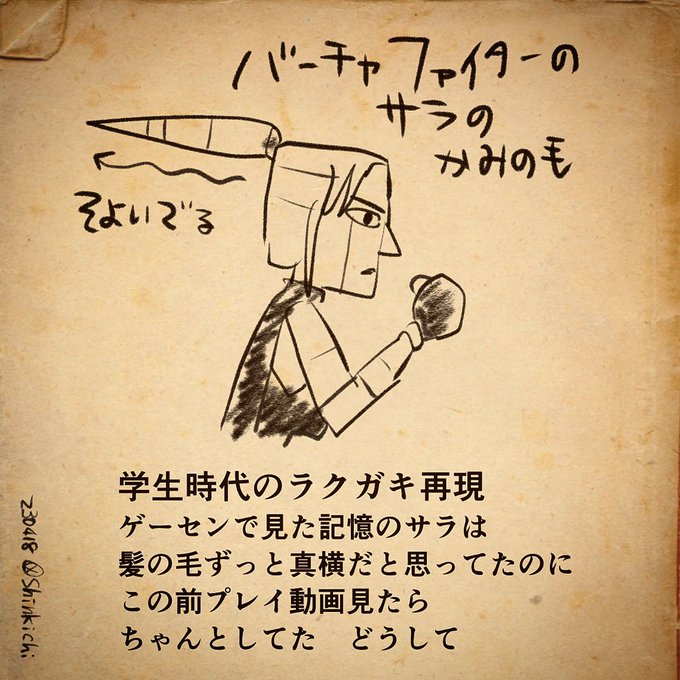 バーチャファイターの
サラの
かみの毛
そよいでる
学生時代のラクガキ再現
ゲーセンで見た記憶のサラは
髪の毛ずっと真横だと思ってたのに
この前プレイ動画見たら
ちゃんとしてた　どうして
230418 @Shinkichi